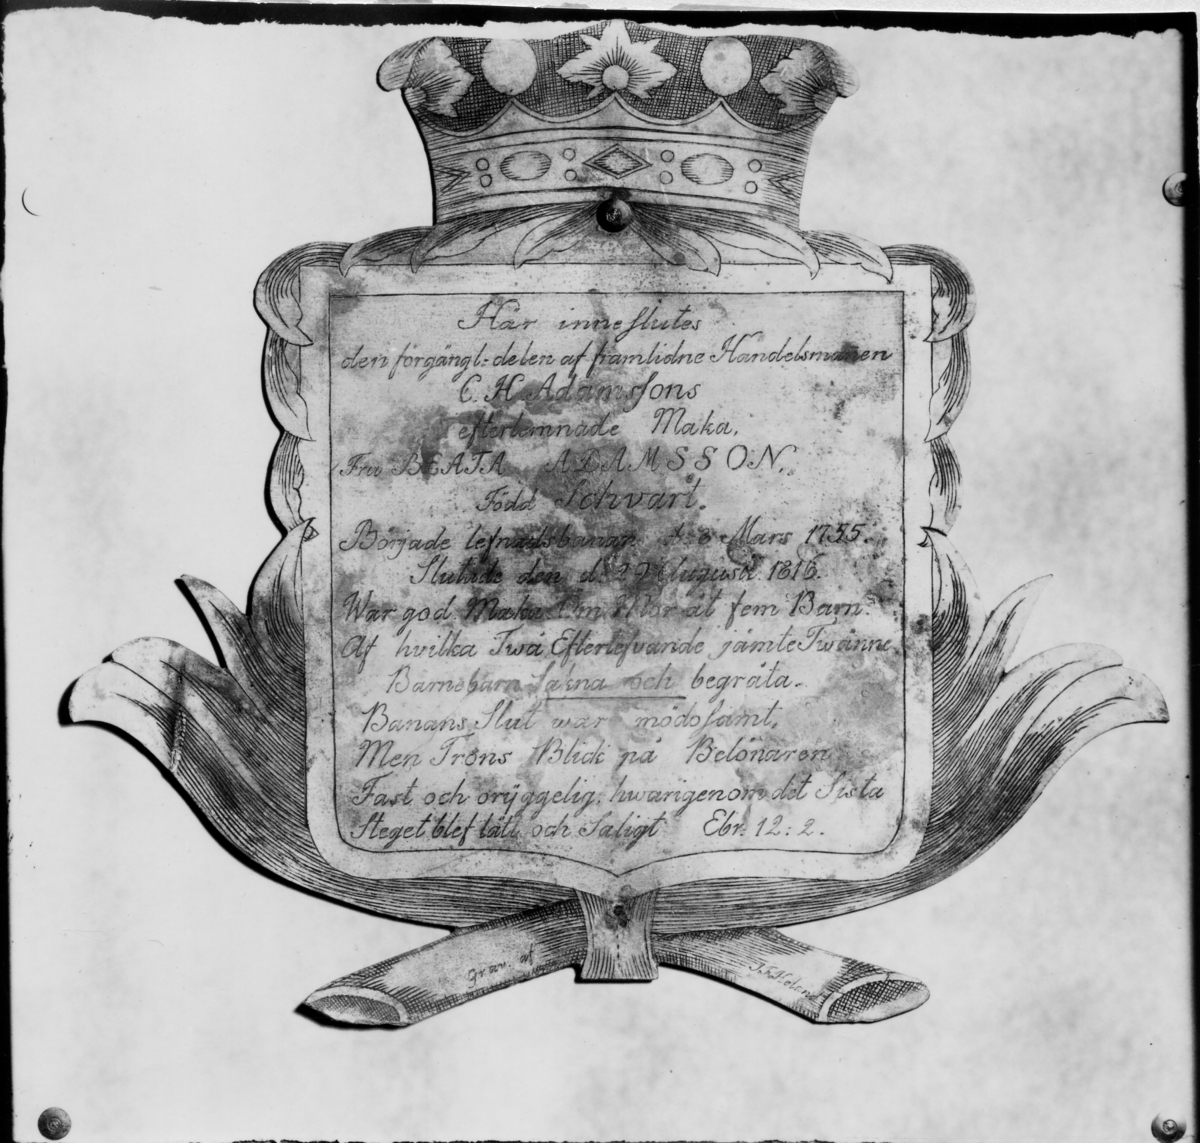 Här inneslutes
den förgängl: delen af framlidne Handelsmanen
C. H Adamssons
efterlemnade Maka,
Fru BEATA ADAMSSON,
Född Schvart.
Började lefnadsbanan d. 8 Mars 1755.
Slutade den d. 29 Augusti 1816.
War god Maka Öm Mor åt fem Barn.
Af hvilka Twå Efterlefvande jämte Twänne
Barnebarn sakna och begråta.
Banans Slut war mödosamt,
Men Trons Blick på Belönaren
Fast och orÿggelig: hwarigenom det Sista
Steget blef lätt och Saligt Ebr: 12: 2.
grav. af